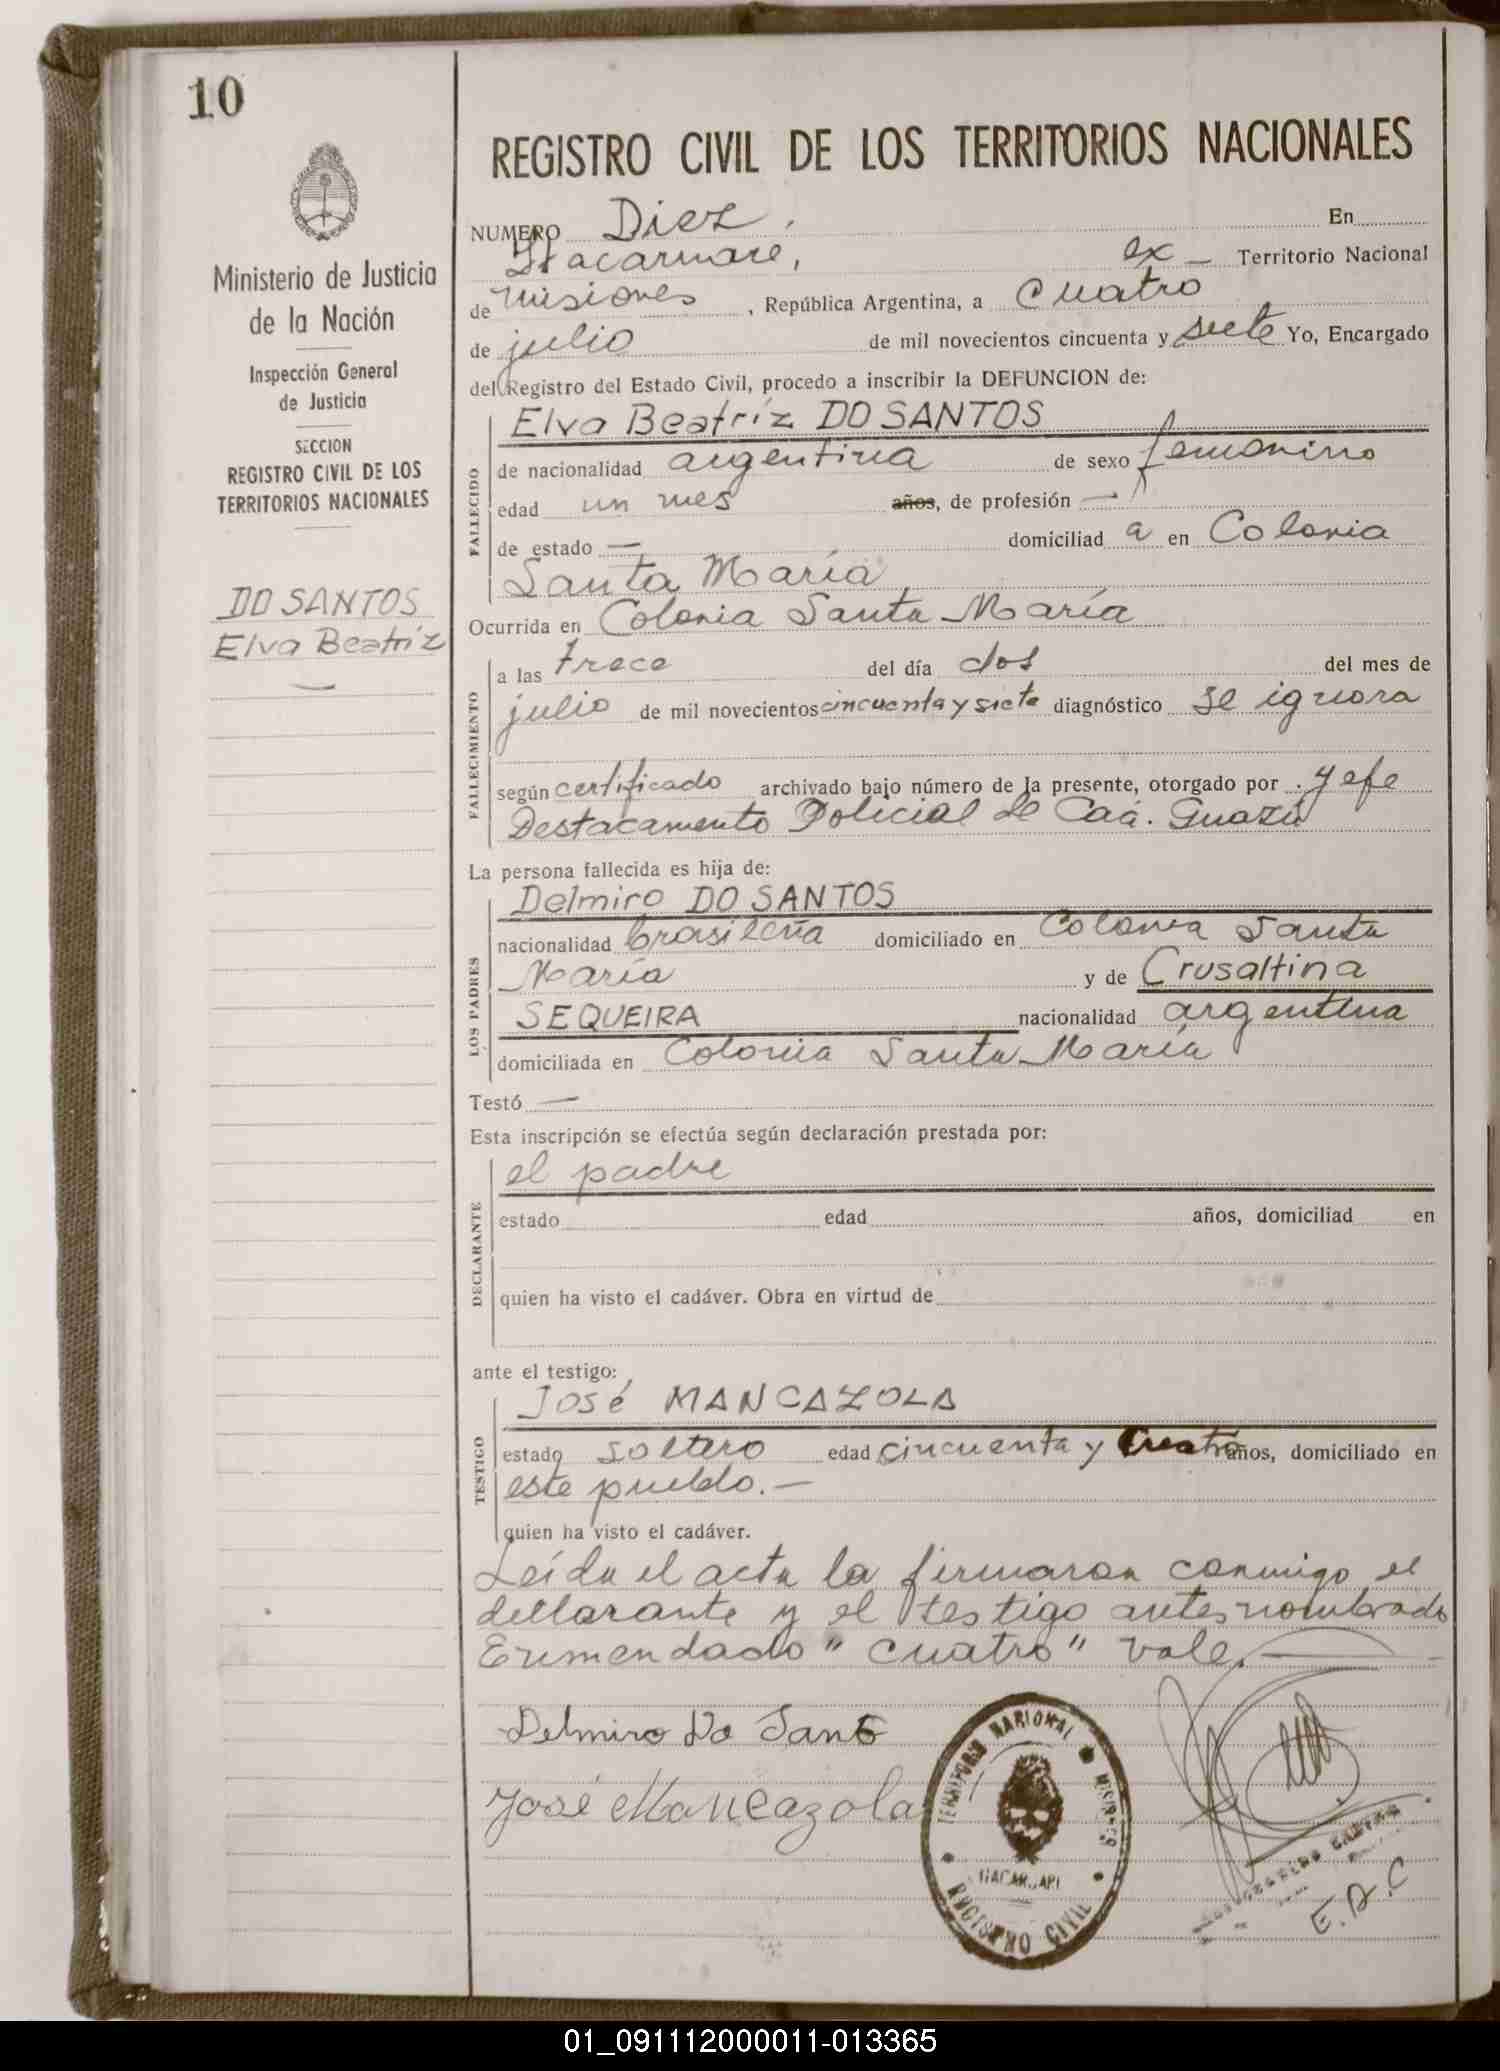 10
Ministerio de Justicia
de la Nación
Inspección General
de Justicia
SECCION
REGISTRO CIVIL DE LOS
TERRITORIOS NACIONALES
DO SANTOS
Elva Beatriz
REGISTRO CIVIL DE LOS TERRITORIOS NACIONALES
NUMERO Diez, En
Itacaruare, ex- Territorio Nacional
de Misiones, República Argentina, a Cuatro
de julio de mil novecientos cincuenta y siete Yo, Encargado
del Registro del Estado Civil, procedo a inscribir la DEFUNCION de:
FALLECIDO
Elva Beatríz DO SANTOS
de nacionalidad argentina de sexo femenino
edad un mes años, de profesión —
de estado — domiciliad a en Colonia
Santa María
Ocurrida en Colonia Santa María
FALLECIMIENTO
a las trece del día dos del mes de
julio de mil novecientos cincuenta y siete diagnóstico se ignora
según certificado archivado bajo número de la presente, otorgado por Jefe
Destacamento Policial de Caá-Guazú
La persona fallecida es hija de:
LOS PADRES
Delmiro DO SANTOS
nacionalidad brasileña domiciliado en Colonia Santa
María y de Crusaltina
SEQUEIRA nacionalidad argentina
domiciliada en Colonia Santa María
Testó —
Esta inscripción se efectúa según declaración prestada por:
DECLARANTE
el padre
estado edad años, domiciliad en
quien ha visto el cadáver. Obra en virtud de
ante el testigo:
TESTIGO
José MANCAZOLA
estado soltero edad cincuenta y Cuatro años, domiciliado en
este pueblo.—
quien ha visto el cadáver.
Leída el acta la firmaron conmigo el
declarante y el testigo antes nombrado
Enmendado "cuatro" vale.—
Delmiro Do Santo
José Mancazola
TERRITORIO NACIONAL MISIONES
ITACARUARE
REGISTRO CIVIL
E.R.C
01_091112000011-013365